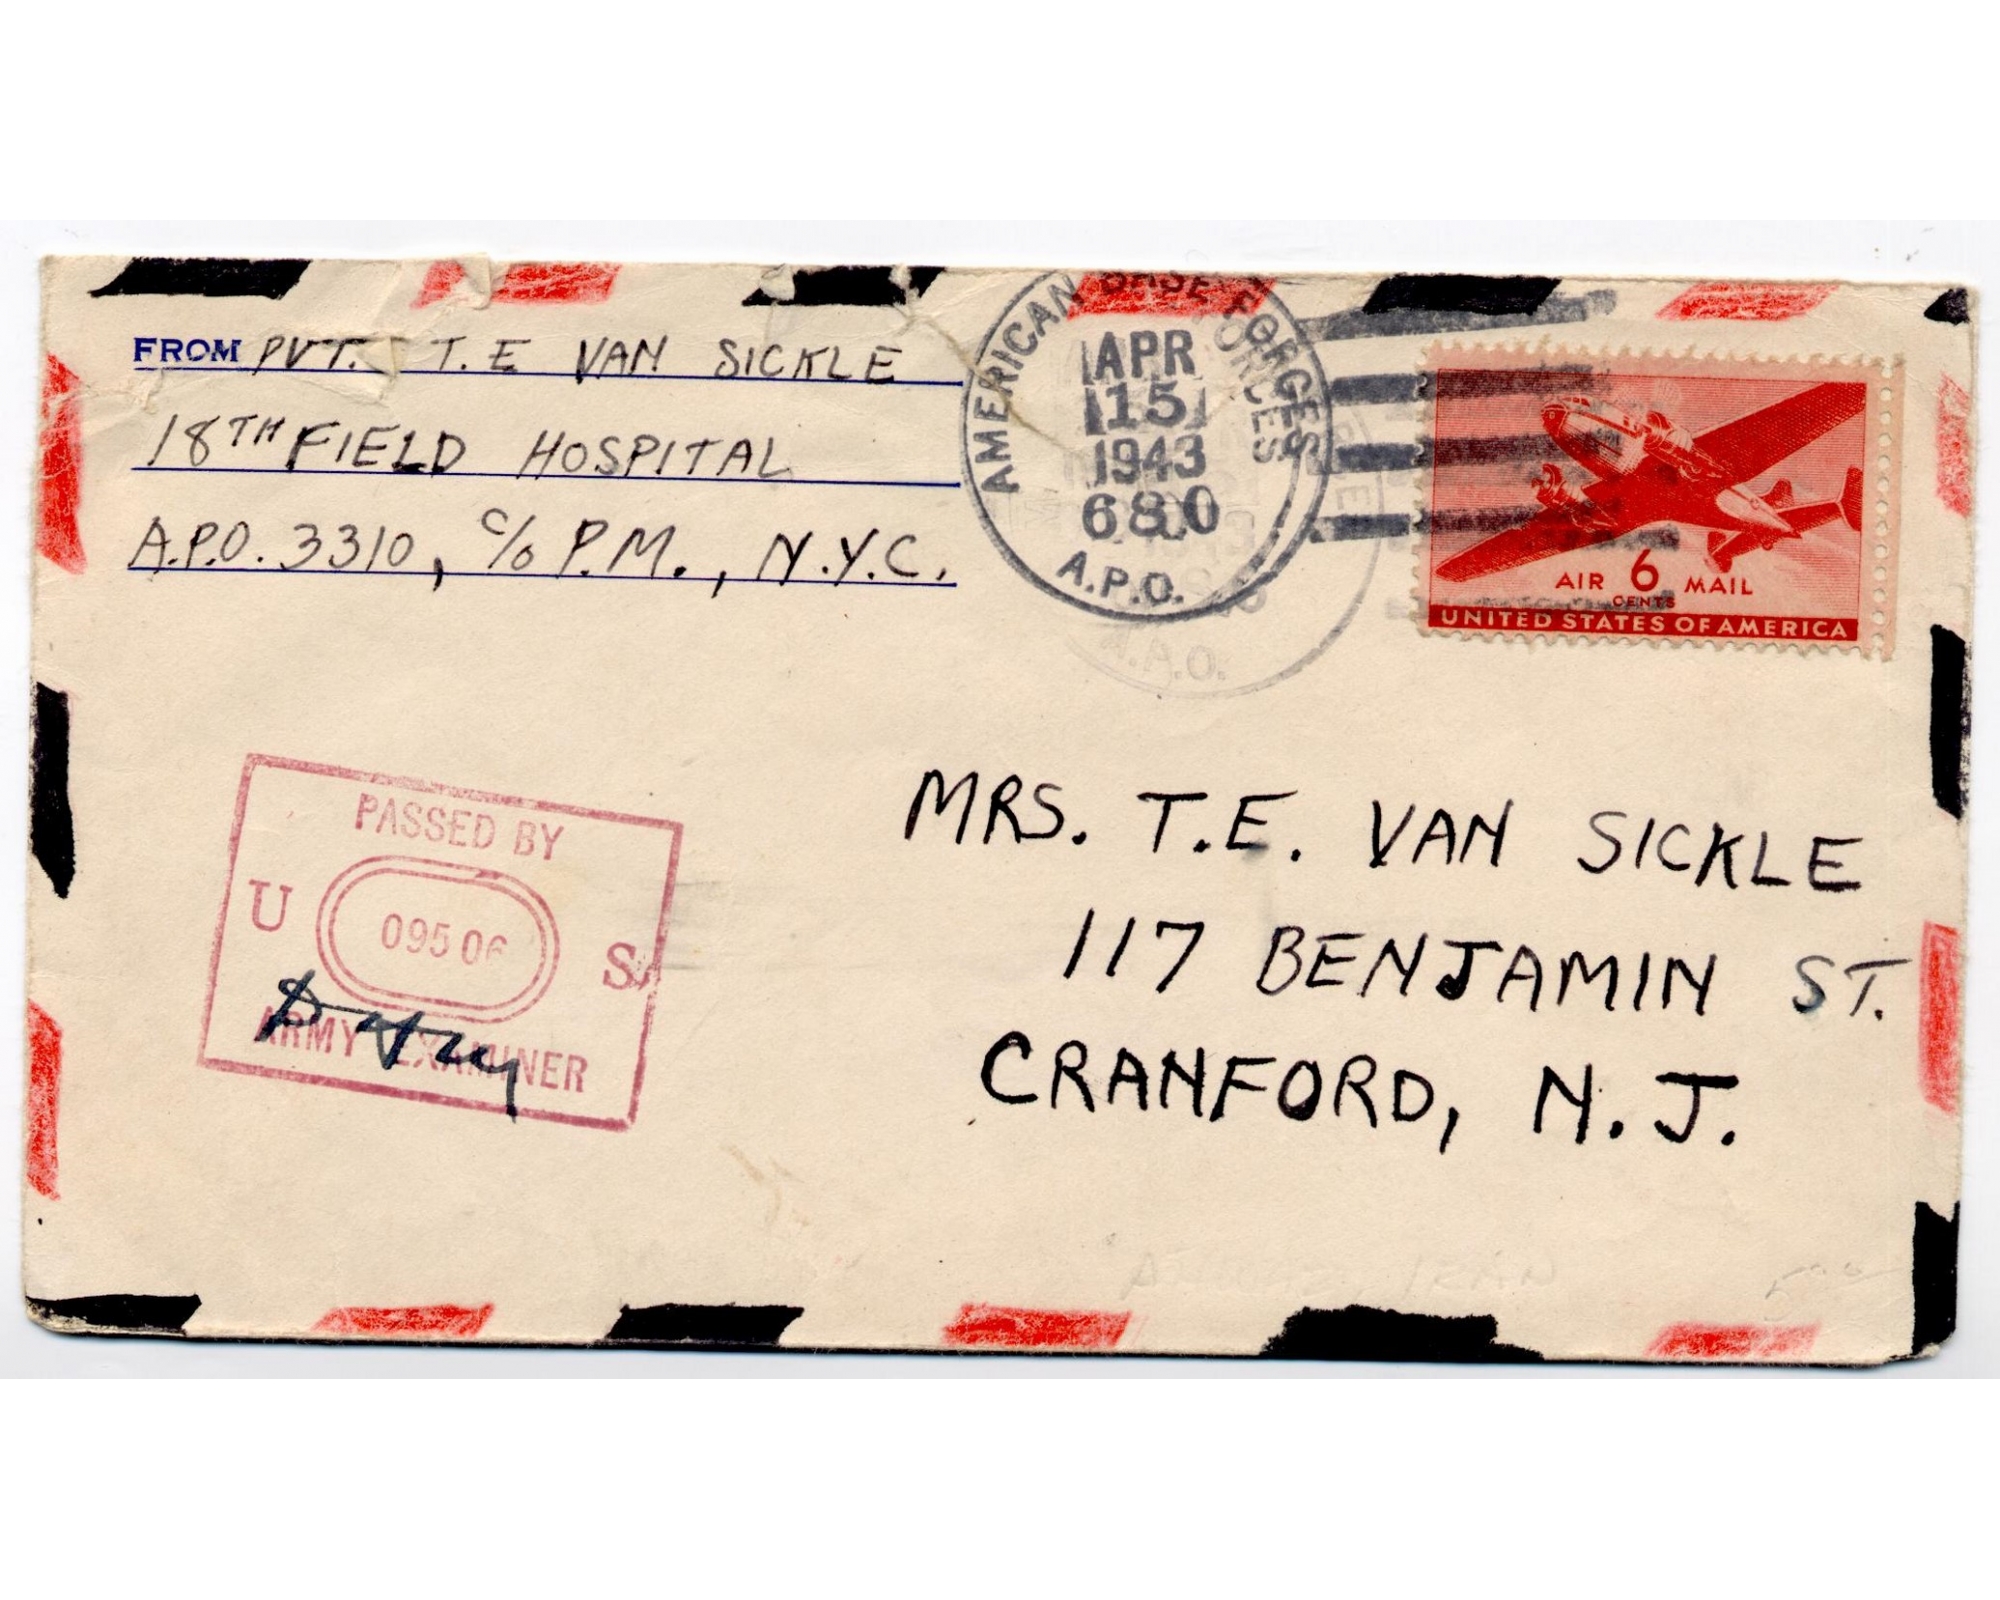 FROM PVT. T.E VAN SICKLE
18TH FIELD HOSPITAL
A.P.O. 3310, c/o P.M., N.Y.C.
AMERICAN BASE FORCES
APR
15
1943
680
A.P.O.
AIR 6 MAIL
CENTS
UNITED STATES OF AMERICA
PASSED BY
U 09506 S
ARMY EXAMINER
MRS. T.E. VAN SICKLE
117 BENJAMIN ST.
CRANFORD, N.J.
IRAN